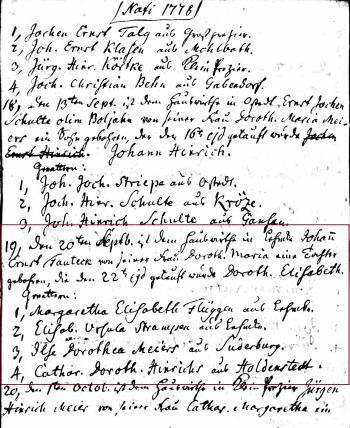 [Nati 1778]
1, Jochen Ernst Talg aus
2, Joh. Ernst Klasen aus
3, Jürg. Hinr. aus Klein
4, Joch. Christian Behn aus
18, den 13ten Sept. ist dem Hauswirthe in Ernst Jochen
Schulte olim Boljahn von seiner Frau Doroth. Maria Mei-
ers ein Sohn gebohren, der den 16ten ejd getauft wurde Jochen
Ernst Hinrich. Johann Hinrich.
Gevattern:
1, Joh. Joch. Striepe aus
2, Joch. Hinr. Schulte aus Kröze.
3, Joh. Hinrich Schulte aus Hansen.
19, den 20ten Septb. ist dem Hauswirthe in Johann
Ernst von seiner Frau Doroth. Maria eine Tochter
gebohren, die den 22ten ejd getauft wurde Doroth. Elisabeth.
Gevattern:
1, Margaretha Elisabeth Flüggen aus
2, Elisab. Ursula aus
3, Ilse Dorothea Meiers aus Suderburg.
4, Cathar. Doroth. Hinrichs aus Holdenstedt.
20, den 1sten Octob. ist dem Hauswirthe in Klein Jürgen
Hinrich Meier von seiner Frau Cathar. Margaretha ein